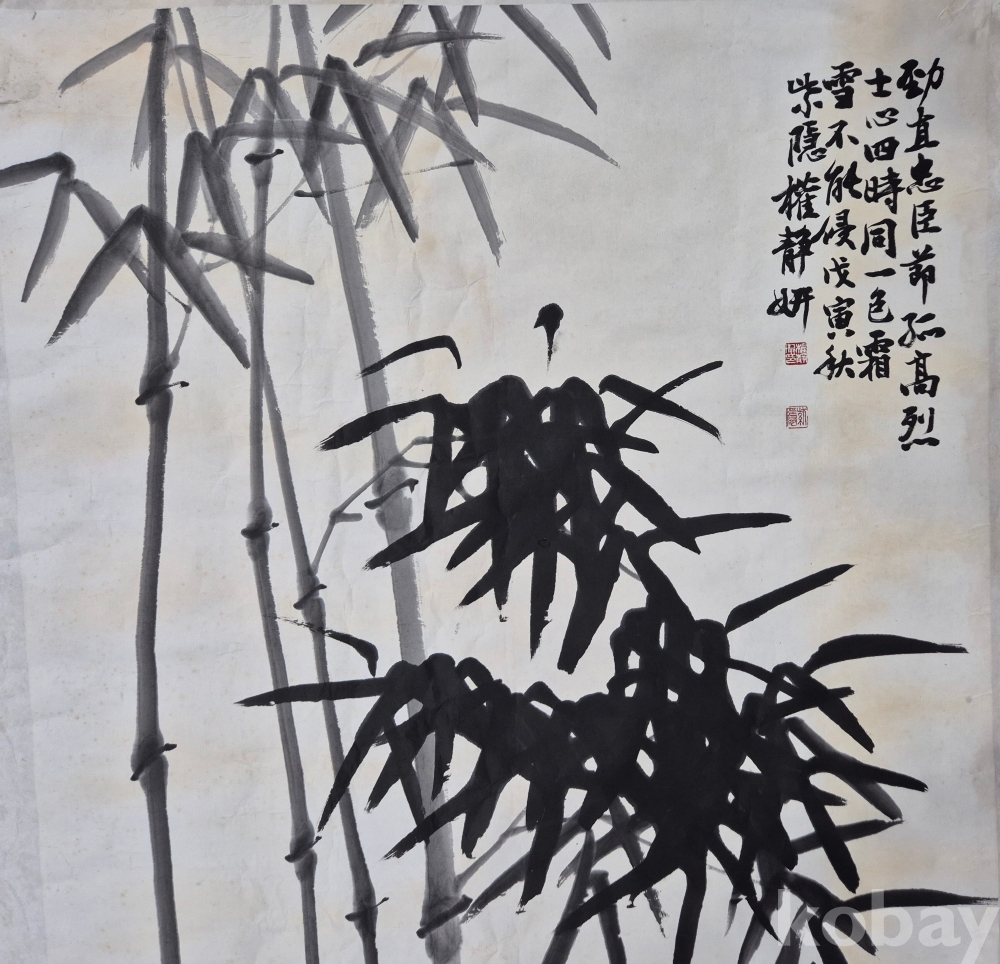 勁直忠臣節孤高烈
士心四時同一色霜
雪不能侵戊寅秋
紫隱權靜妍
kobay